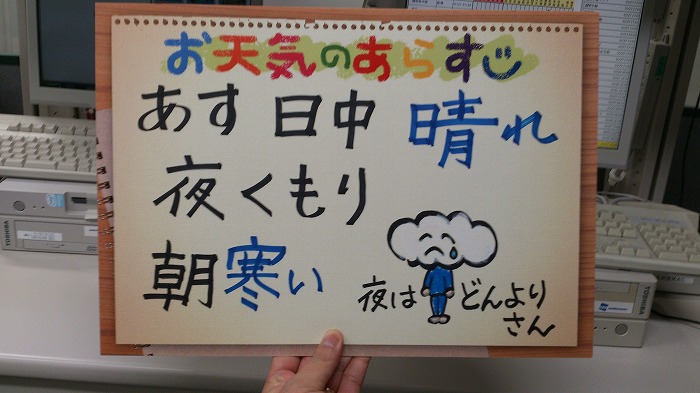 お天気のあらすじ
あす 日中 晴れ
夜くもり
朝寒い
夜は どんより
さん
TOSHIBA
TOSHIBA